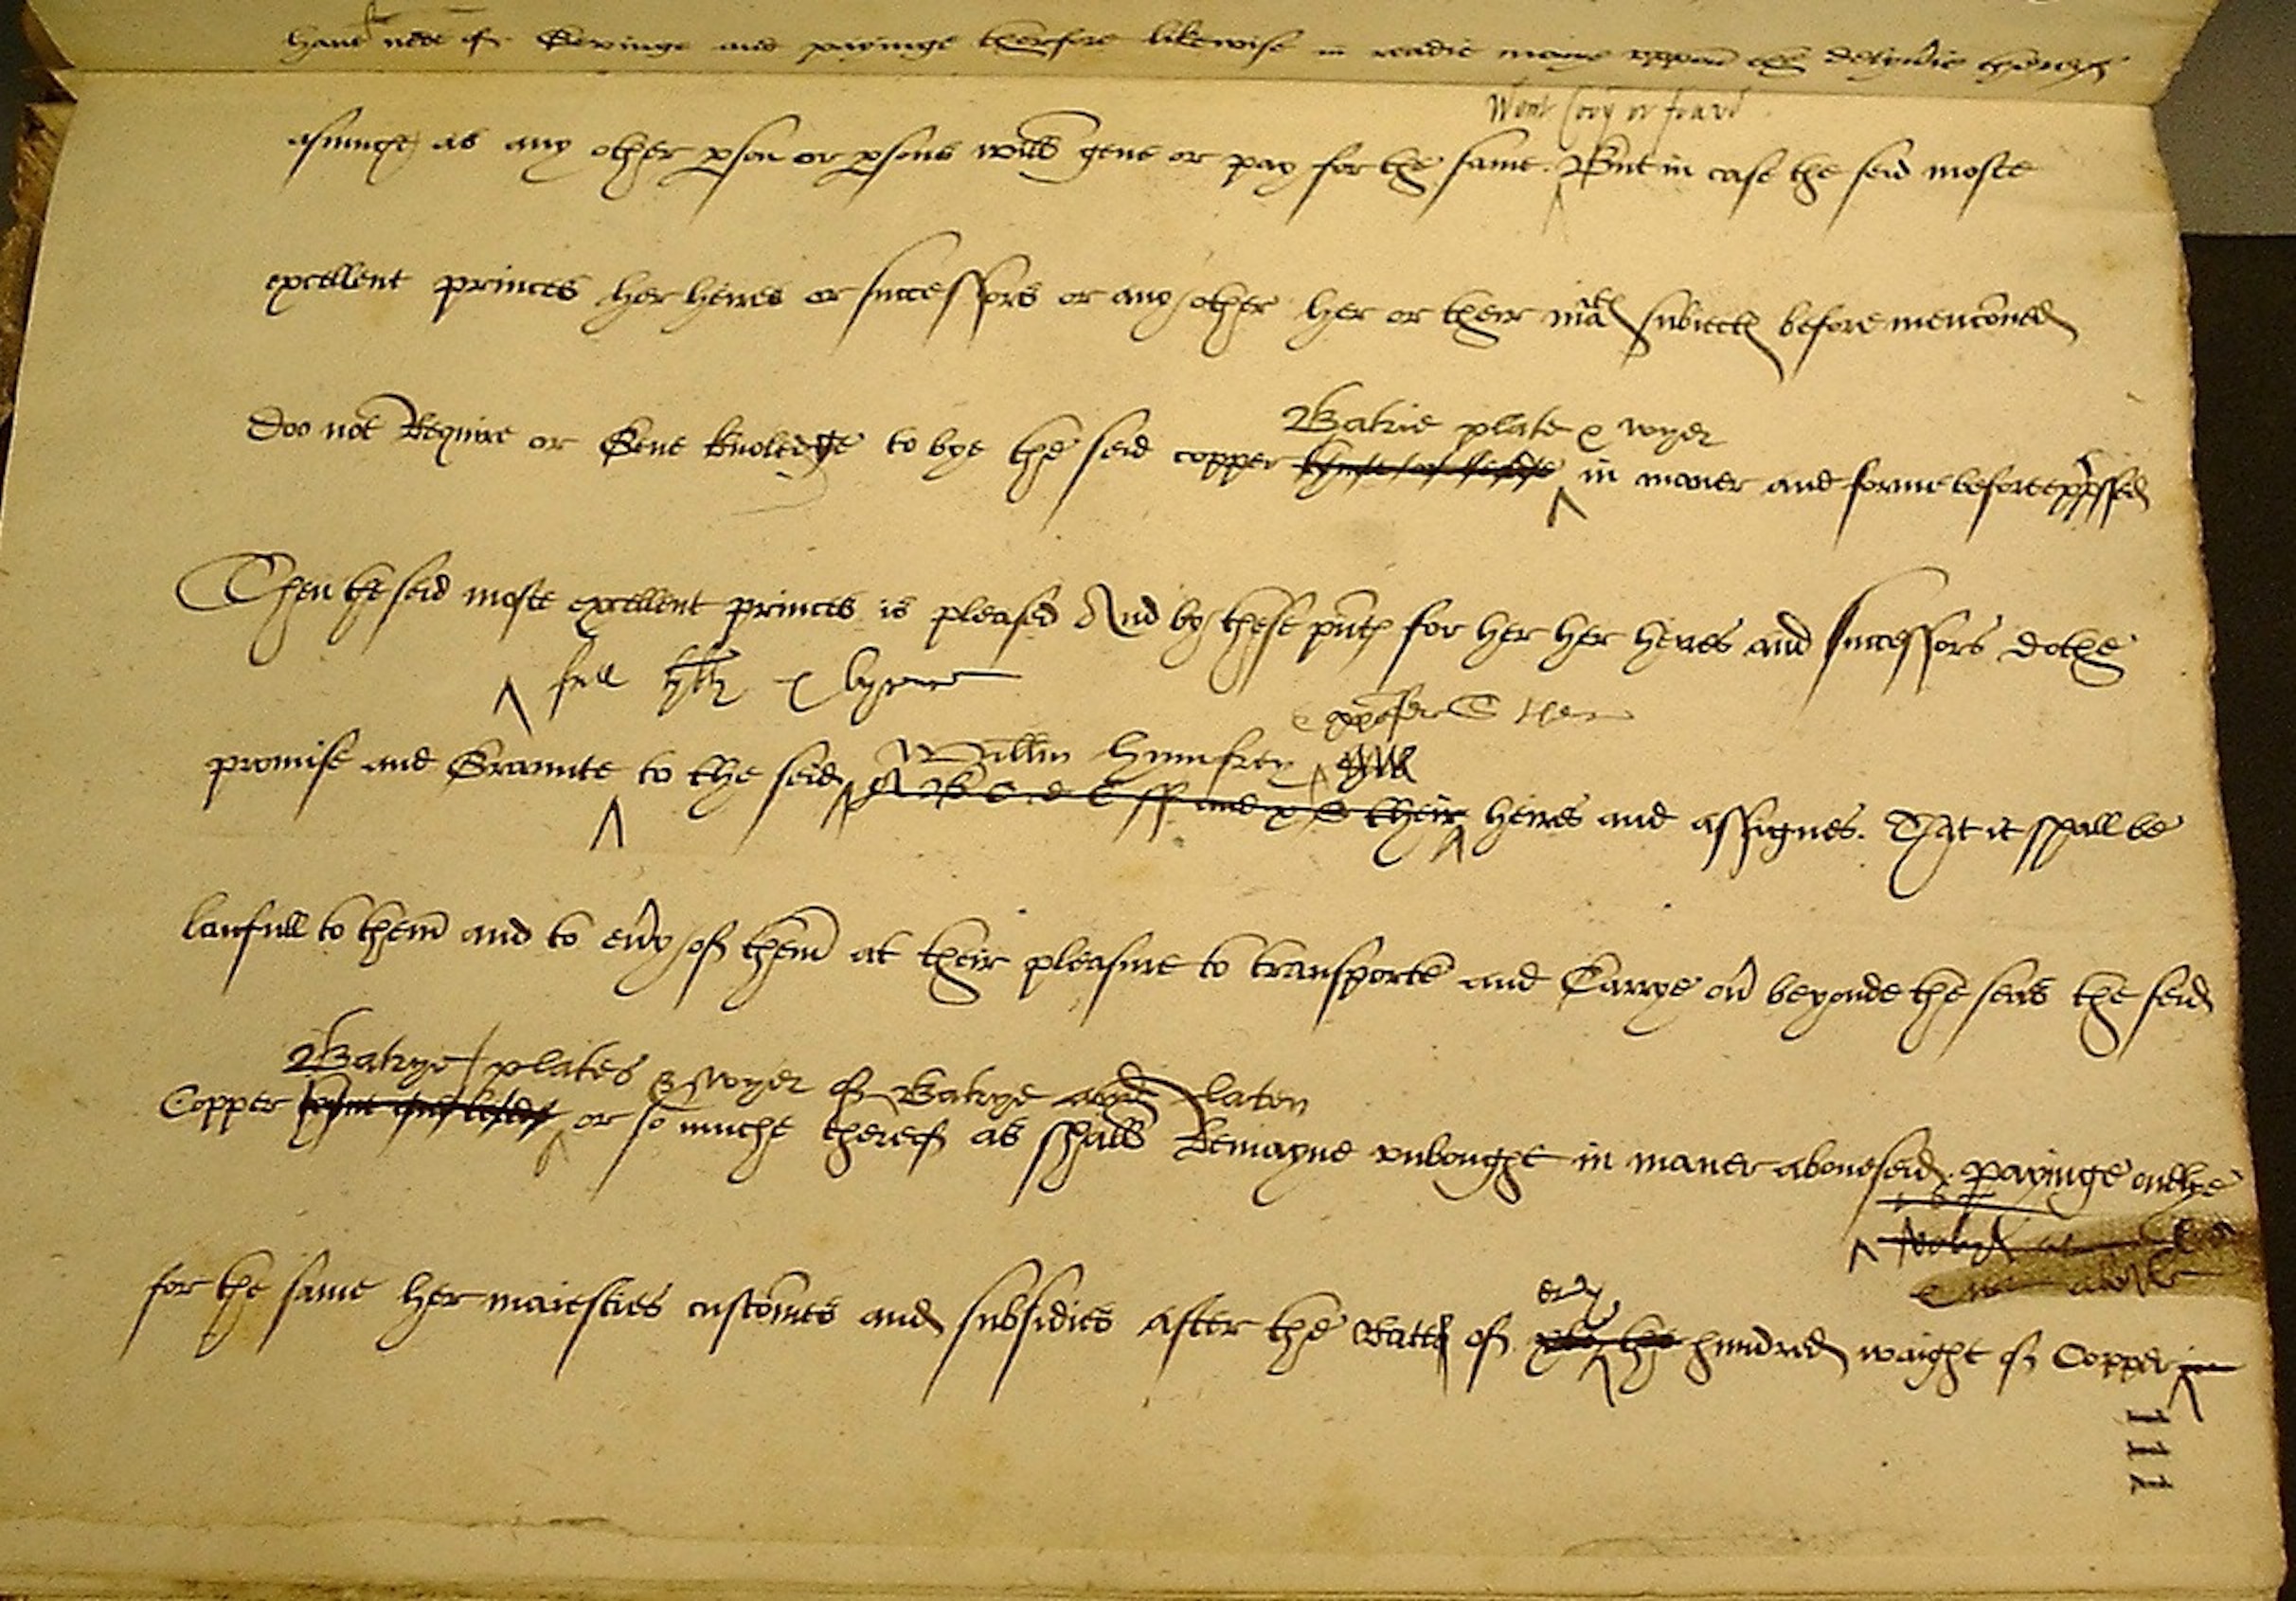 haue nede of. Gevinge and payinge therfore likewise in readie monye vppon the delyu'ie therof
asmuche as any other pson or psons will geue or pay for the same. But in case the seid moste
excellent princes her heires or successors or any other her or their subiectes before mencōned
Batrie plate & wyer
doo not Require or Geue knoledge to bye the seid copper in maner and forme before exp'ssed
Then the seid moste excellent princes is pleased And by these pn'tes for her her heires and successors dothe
full
Will'm Humfrey
promise and Graunte to the seid A B C D E ff and their heires and assignes. That it shall be
laufull to them and to eu'y of them at their pleasure to transporte and Carrye ou' beyonde the seas the seid
Batrye plates & wyer of Batrye laten
Copper or so muche thereof as shall Remayne vnbought in maner aboueseid. payinge onelye
eu'y
for the same her maiesties custōmes and subsidies after the Rates of hundred waight of Copper